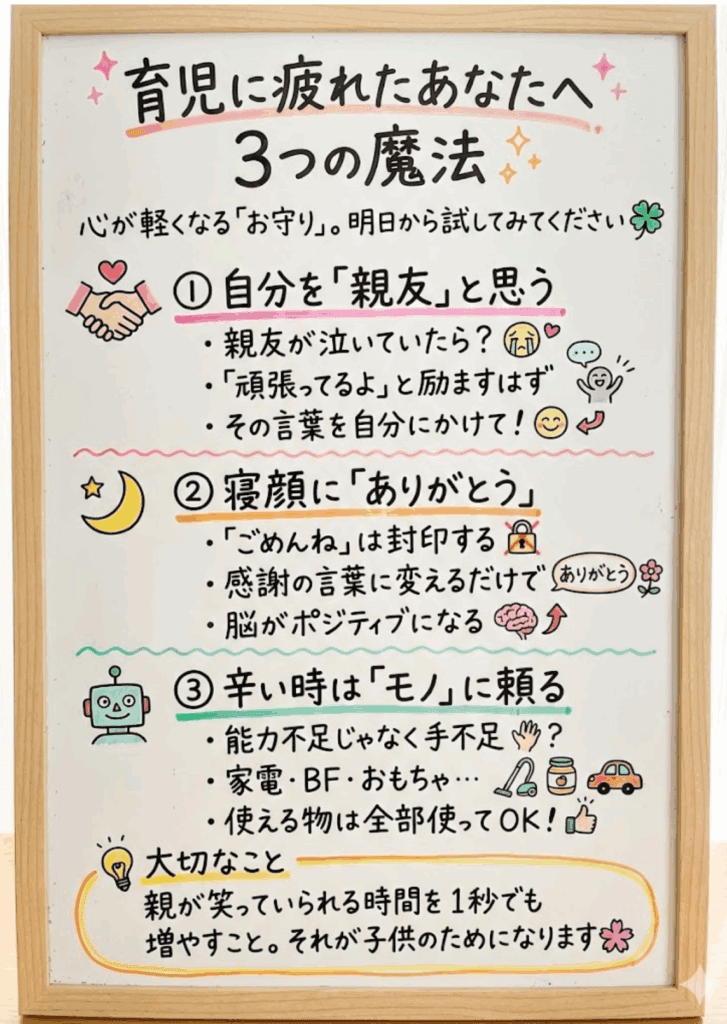 育児に疲れたあなたへ
3つの魔法
心が軽くなる「お守り」。明日から試してみてください
① 自分を「親友」と思う
・親友が泣いていたら?
・「頑張ってるよ」と励ますはず
・その言葉を自分にかけて!
② 寝顔に「ありがとう」
・「ごめんね」は封印する
・感謝の言葉に変えるだけで
ありがとう
・脳がポジティブになる
③ 辛い時は「モノ」に頼る
・能力不足じゃなく手不足?
・家電・BF・おもちゃ…
・使える物は全部使ってOK!
大切なこと
親が笑っていられる時間を1秒でも
増やすこと。それが子供のためになります